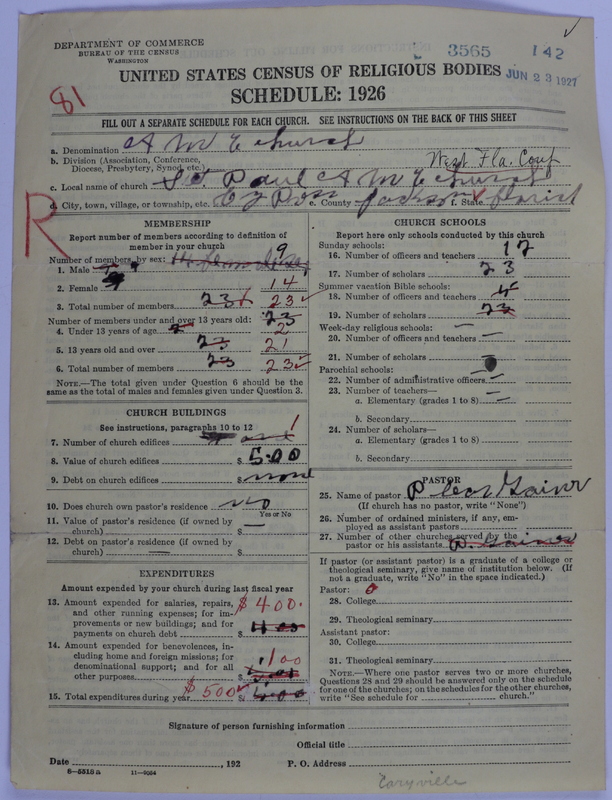 DEPARTMENT OF COMMERCE
BUREAU OF THE CENSUS
WASHINGTON
3565 142
JUN 23 1927
UNITED STATES CENSUS OF RELIGIOUS BODIES
SCHEDULE: 1926
81
FILL OUT A SEPARATE SCHEDULE FOR EACH CHURCH. SEE INSTRUCTIONS ON THE BACK OF THIS SHEET
a. Denomination A M E Church
b. Division (Association, Conference, Diocese, Presbytery, Synod, etc.) West Fla. Conf
c. Local name of church St Paul A M E Church
d. City, town, village, or township, etc. e. County Jackson f. State
R
MEMBERSHIP
Report number of members according to definition of
member in your church
Number of members, by sex: 9
1. Male 9
2. Female 14
3. Total number of members 23 23
Number of members under and over 13 years old: 23
4. Under 13 years of age 2 2
5. 13 years old and over 23 21
6. Total number of members 23 23
NOTE.—The total given under Question 6 should be the
same as the total of males and females given under Question 3.
CHURCH BUILDINGS
See instructions, paragraphs 10 to 12
7. Number of church edifices one 1
8. Value of church edifices $ 500
9. Debt on church edifices $ none
10. Does church own pastor's residence no
Yes or No
11. Value of pastor's residence (if owned by
church) $ —
12. Debt on pastor's residence (if owned by
church) — $
EXPENDITURES
Amount expended by your church during last fiscal year
13. Amount expended for salaries, repairs,
and other running expenses; for im-
provements or new buildings; and for
payments on church debt $ $400.
14. Amount expended for benevolences, in-
cluding home and foreign missions; for
denominational support; and for all
other purposes $ 100
15. Total expenditures during year $500 $
CHURCH SCHOOLS
Report here only schools conducted by this church
Sunday schools:
16. Number of officers and teachers 12
17. Number of scholars 23
Summer vacation Bible schools:
18. Number of officers and teachers
19. Number of scholars 23
Week-day religious schools: —
20. Number of officers and teachers —
21. Number of scholars —
Parochial schools:
22. Number of administrative officers —
23. Number of teachers—
a. Elementary (grades 1 to 8) —
b. Secondary
24. Number of scholars—
a. Elementary (grades 1 to 8)
b. Secondary
PASTOR
25. Name of pastor
(If church has no pastor, write "None")
26. Number of ordained ministers, if any, em-
ployed as assistant pastors
27. Number of other churches served by the
pastor or his assistants
If pastor (or assistant pastor) is a graduate of a college or
theological seminary, give name of institution below. (If
not a graduate, write "No" in the space indicated.)
Pastor: 0
28. College
29. Theological seminary
Assistant pastor:
30. College
31. Theological seminary
NOTE.—Where one pastor serves two or more churches,
Questions 28 and 29 should be answered only on the schedule
for one of the churches; on the schedules for the other churches,
write "See schedule for church."
Signature of person furnishing information
Official title
Date , 192 P. O. Address
6-5518a 11-9054
Caryville